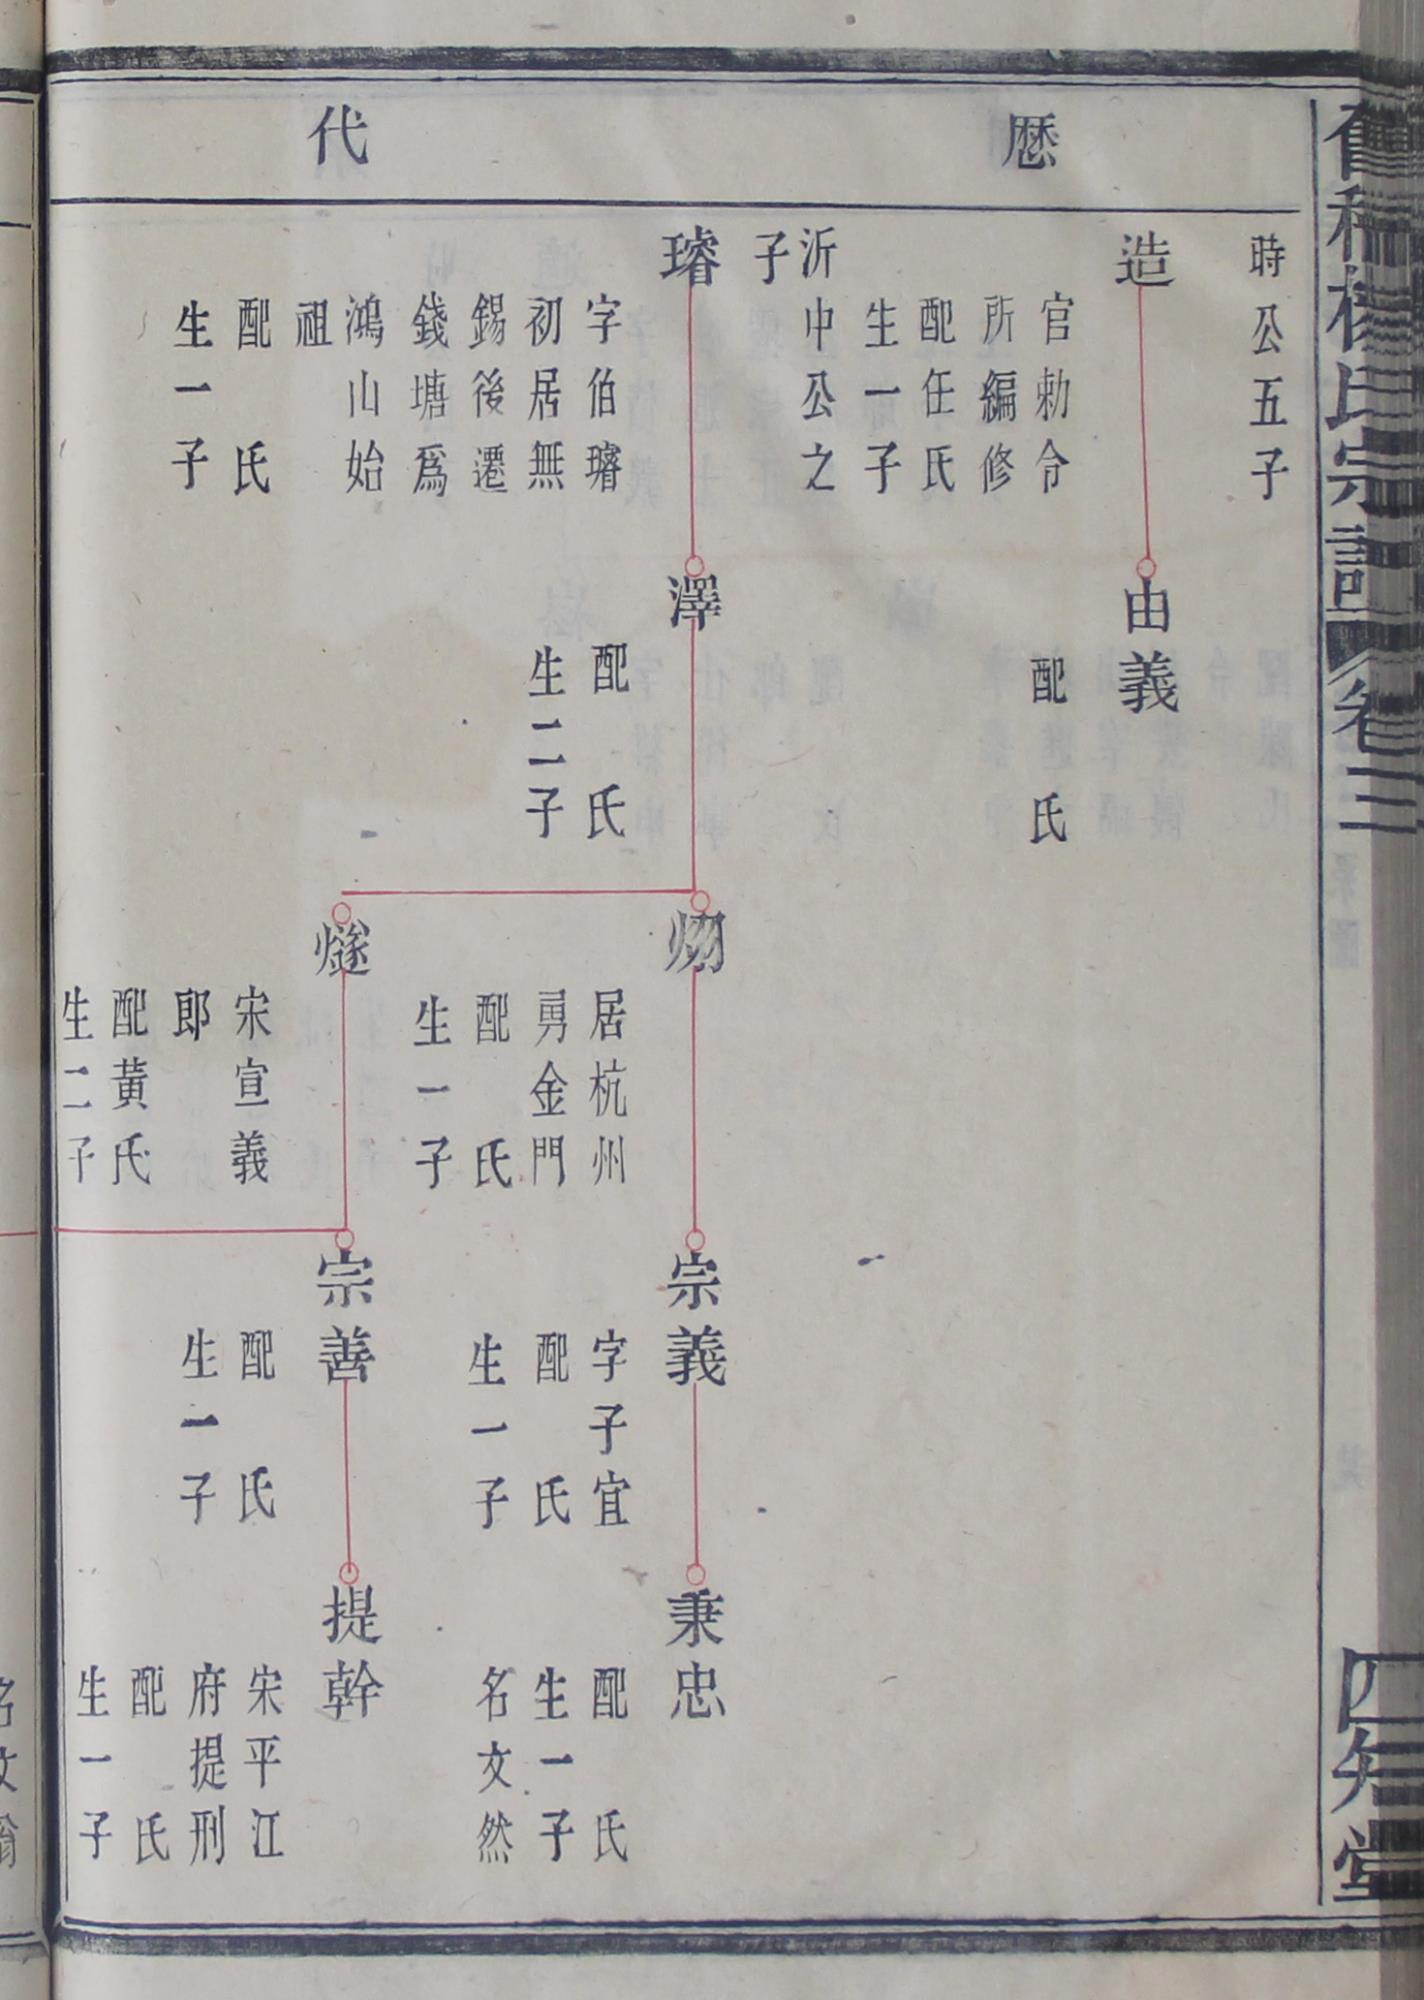 歷
代
時公五子
造
官勅令
所編修
配任氏
生一子
沂中公之
子
璿
字伯璿
初居無
錫後遷
錢塘爲
鴻山始
祖
配氏
生一子
由義
配氏
澤
配氏
生二子
居杭州
勇金門
配氏
生一子
燧
宋宣義
郎
配黃氏
生二子
宗義
字子宜
配氏
生一子
宗善
配氏
生一子
秉忠
配氏
生一子
名文然
提幹
宋平江
府提刑
配氏
生一子
氏宗譜
卷三
四知堂